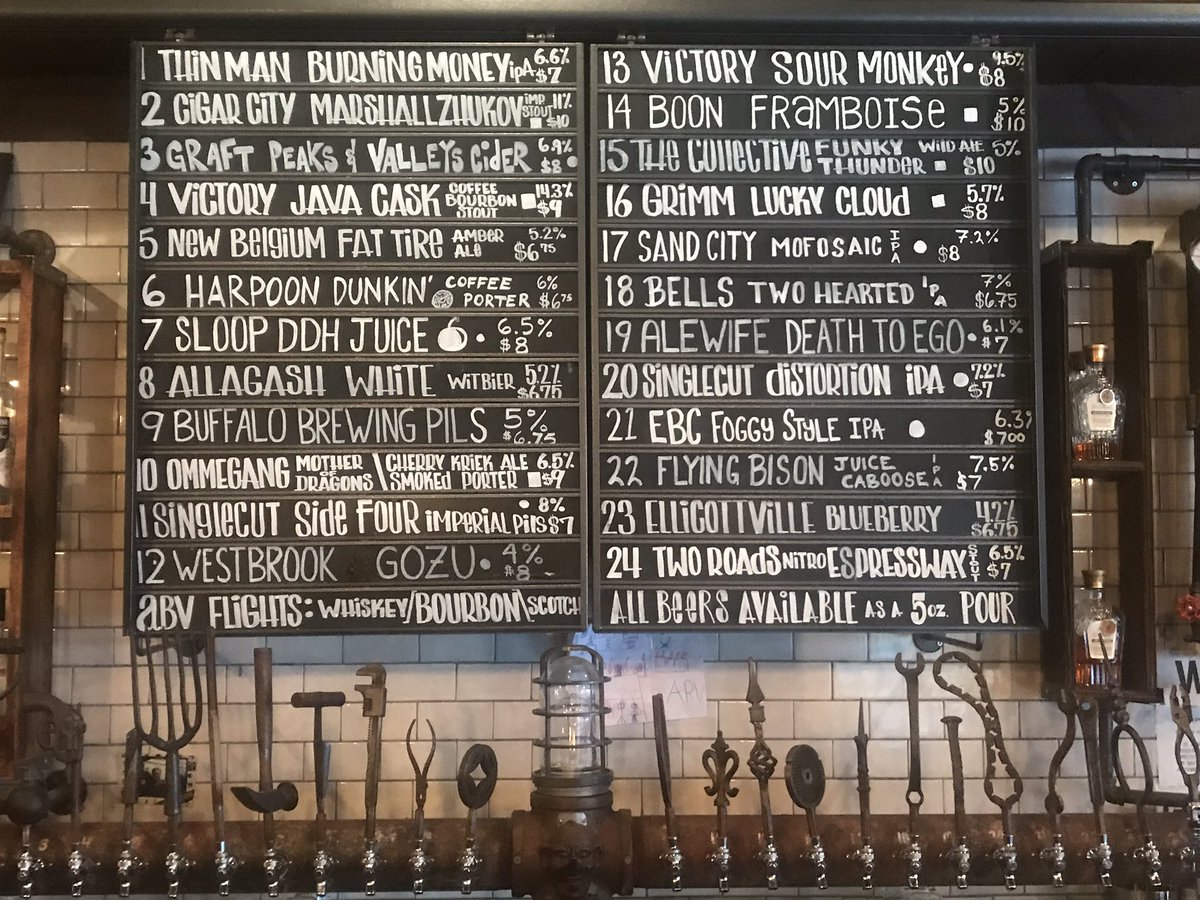 1 THIN MAN BURNING MONEY IPA 6.6% $7
2 CIGAR CITY MARSHALL ZHUKOV IMP STOUT 11% $10
3 GRAFT PEAKS & VALLEYS CIDER 6.9% $8
4 VICTORY JAVA CASK COFFEE BOURBON STOUT 14.3% $9
5 NEW BELGIUM FAT TIRE AMBER ALE 5.2% $6.75
6 HARPOON DUNKIN' COFFEE PORTER 6% $6.75
7 SLOOP DDH JUICE 6.5% $8
8 ALLAGASH WHITE WITBIER 5.2% $6.75
9 BUFFALO BREWING PILS 5% $6.75
10 OMMEGANG MOTHER OF DRAGONS \ CHERRY KRIEK ALE SMOKED PORTER 6.5% $9
11 SINGLECUT SIDE FOUR IMPERIAL PILS 8% $7
12 WESTBROOK GOZU 4% $8
ABV FLIGHTS: WHISKEY/BOURBON\SCOTCH
13 VICTORY SOUR MONKEY 9.5% $8
14 BOON FRAMBOISE 5% $10
15 THE COLLECTIVE FUNKY THUNDER WILD ALE 5% $10
16 GRIMM LUCKY CLOUD 5.7% $8
17 SAND CITY MOFOSAIC IPA 7.2% $8
18 BELLS TWO HEARTED IPA 7% $6.75
19 ALEWIFE DEATH TO EGO 6.1% $7
20 SINGLECUT DISTORTION IPA 7.2% $7
21 EBC FOGGY STYLE IPA 6.3% $7.00
22 FLYING BISON JUICE CABOOSE IPA 7.5% $7
23 ELLICOTTVILLE BLUEBERRY 4.2% $6.75
24 TWO ROADS NITRO ESPRESSWAY STOUT 6.5% $7
ALL BEERS AVAILABLE AS A 5 OZ. POUR